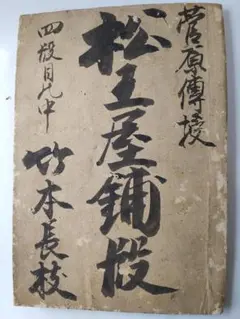 菅原傳授
松王屋鋪段
四段目ノ中
竹本長枝